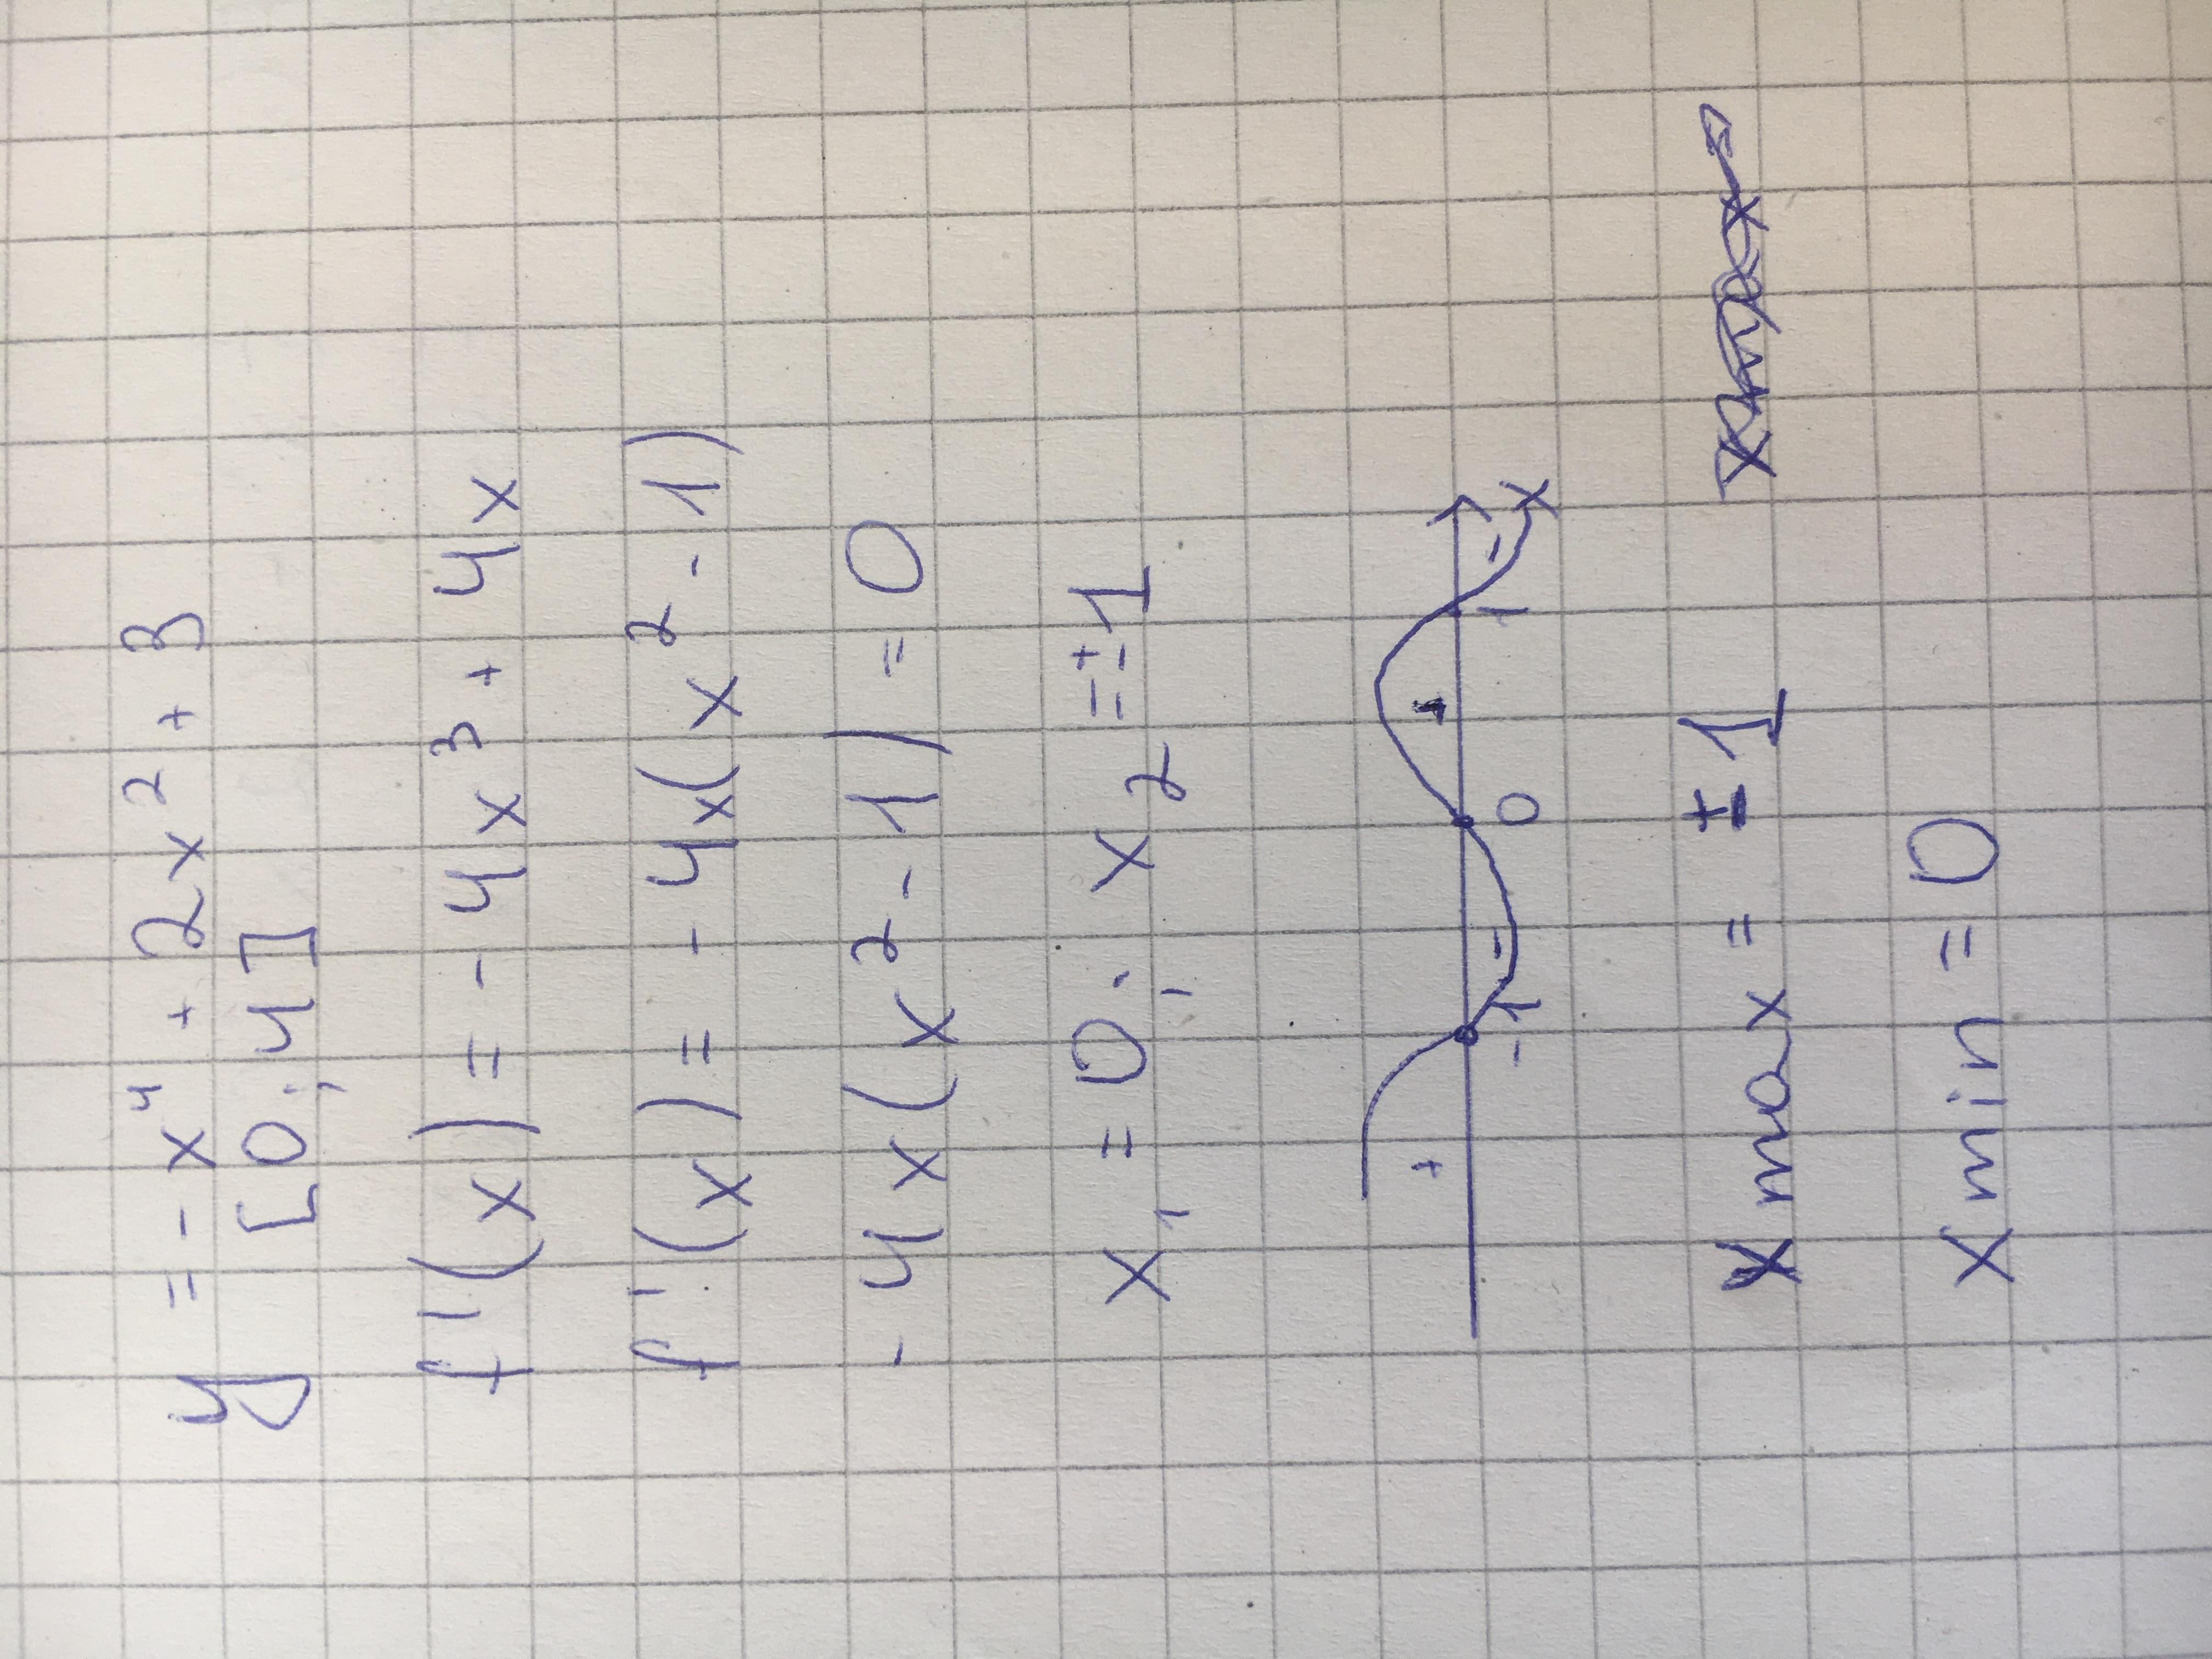 y = - x⁴ + 2x² + 3
[0; 4]
f'(x) = - 4x³ + 4x
f'(x) = - 4x(x² - 1)
- 4x(x² - 1) = 0
x₁ = 0; x₂ = ±1
+ - + -
-1 0 1 x
x max = ±1
x min = 0